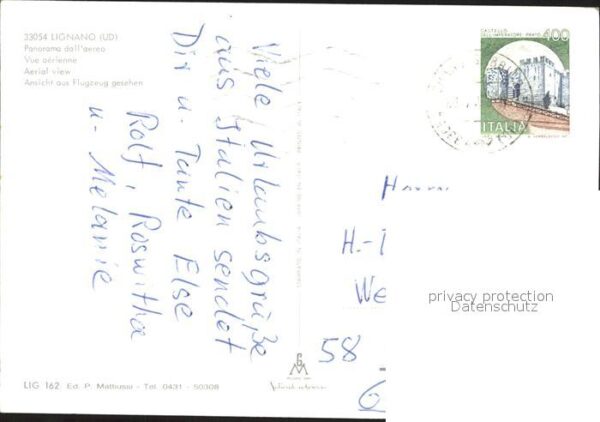 33054 LIGNANO (UD)
Panorama dall'aereo
Vue aérienne
Aerial view
Ansicht aus Flugzeug gesehen
Viele Urlaubsgrüße
aus Italien sendet
Dir u. Tante Else
Ralf, Roswitha
u. Melanie
CASTELLO
DELL'IMPERATORE PRATO 400
ITALIA
H.-
We
58
6
privacy protection
Datenschutz
LIG 162 Ed. P. Mattiussi - Tel. 0431 - 50308